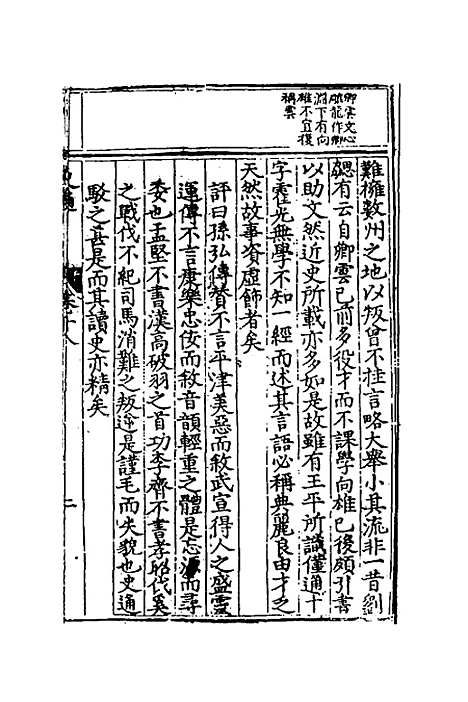 卿雲文心
雕龍作卿
淵下有向
雄不宜復
稱雲
難擁數州之地以叛曾不挂言略大舉小其流非一昔劉
勰有云自卿雲已前多役才而不課學向雄已後頗引書
以助文然近史所載亦多如是故雖有王平所識僅通十
字霍光無學不知一經而述其言語必稱典麗良由才乏
天然故事資虛飾者矣
評曰孫弘傳贊不言平津美惡而敘武宣得人之盛靈
運傳不言康樂忠佞而敘音韻輕重之體是忘源而尋
委也孟堅不書漢高破羽之首功李齊不書孝昭代奚
之戰伐不紀司馬消難之叛逆是謹毛而失貌也史通
駁之甚是而其讀史亦精矣
史通
卷十八
二